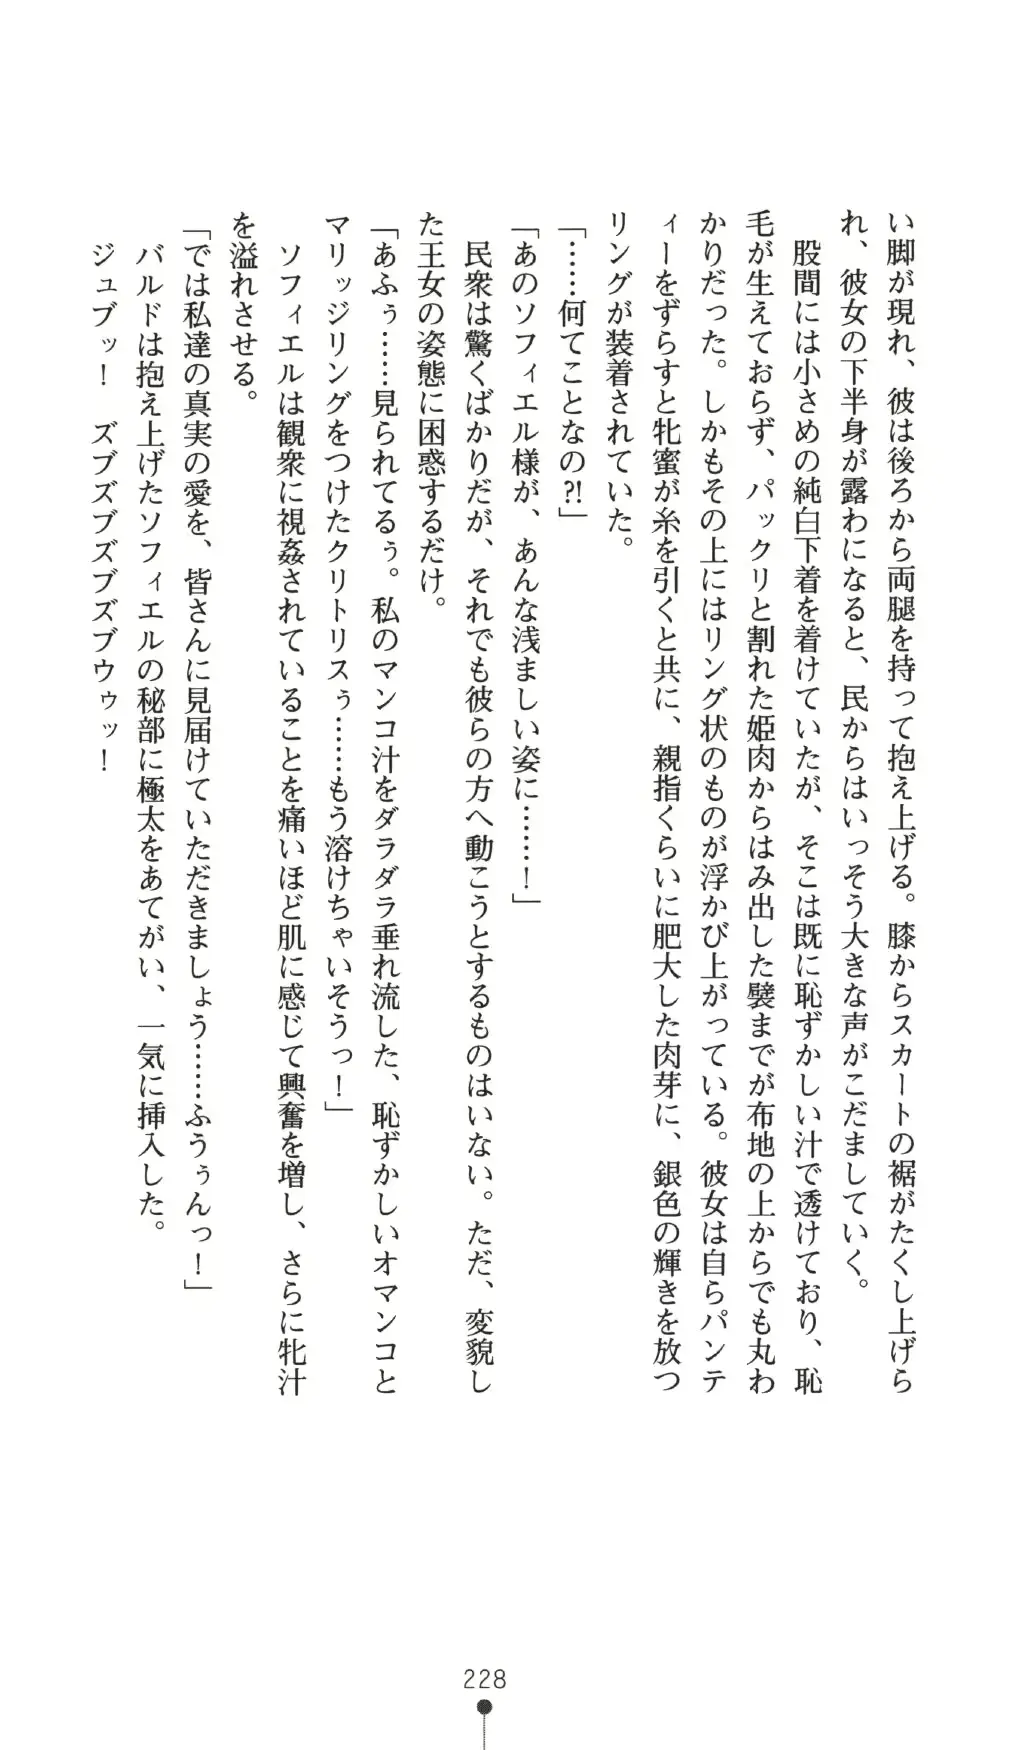 い脚が現れ、彼は後ろから両腿を持って抱え上げる。膝からスカートの裾がたくし上げら
れ、彼女の下半身が露わになると、民からはいっそう大きな声がこだましていく。
股間には小さめの純白下着を着けていたが、そこは既に恥ずかしい汁で透けており、恥
毛が生えておらず、パックリと割れた姫肉からはみ出した襞までが布地の上からでも丸わ
かりだった。しかもその上にはリング状のものが浮かび上がっている。彼女は自らパンテ
ィーをずらすと牝蜜が糸を引くと共に、親指くらいに肥大した肉芽に、銀色の輝きを放つ
リングが装着されていた。
「……何てことなの?!」
「あのソフィエル様が、あんな浅ましい姿に……！」
民衆は驚くばかりだが、それでも彼らの方へ動こうとするものはいない。ただ、変貌し
た王女の姿態に困惑するだけ。
「あふぅ……見られてるぅ。私のマンコ汁をダラダラ垂れ流した、恥ずかしいオマンコと
マリッジリングをつけたクリトリスぅ……もう溶けちゃいそうっ！」
ソフィエルは観衆に視姦されていることを痛いほど肌に感じて興奮を増し、さらに牝汁
を溢れさせる。
「では私達の真実の愛を、皆さんに見届けていただきましょう……ふうぅんっ！」
バルドは抱え上げたソフィエルの秘部に極太をあてがい、一気に挿入した。
ジュブッ！　ズブズブズブズブウゥッ！
228